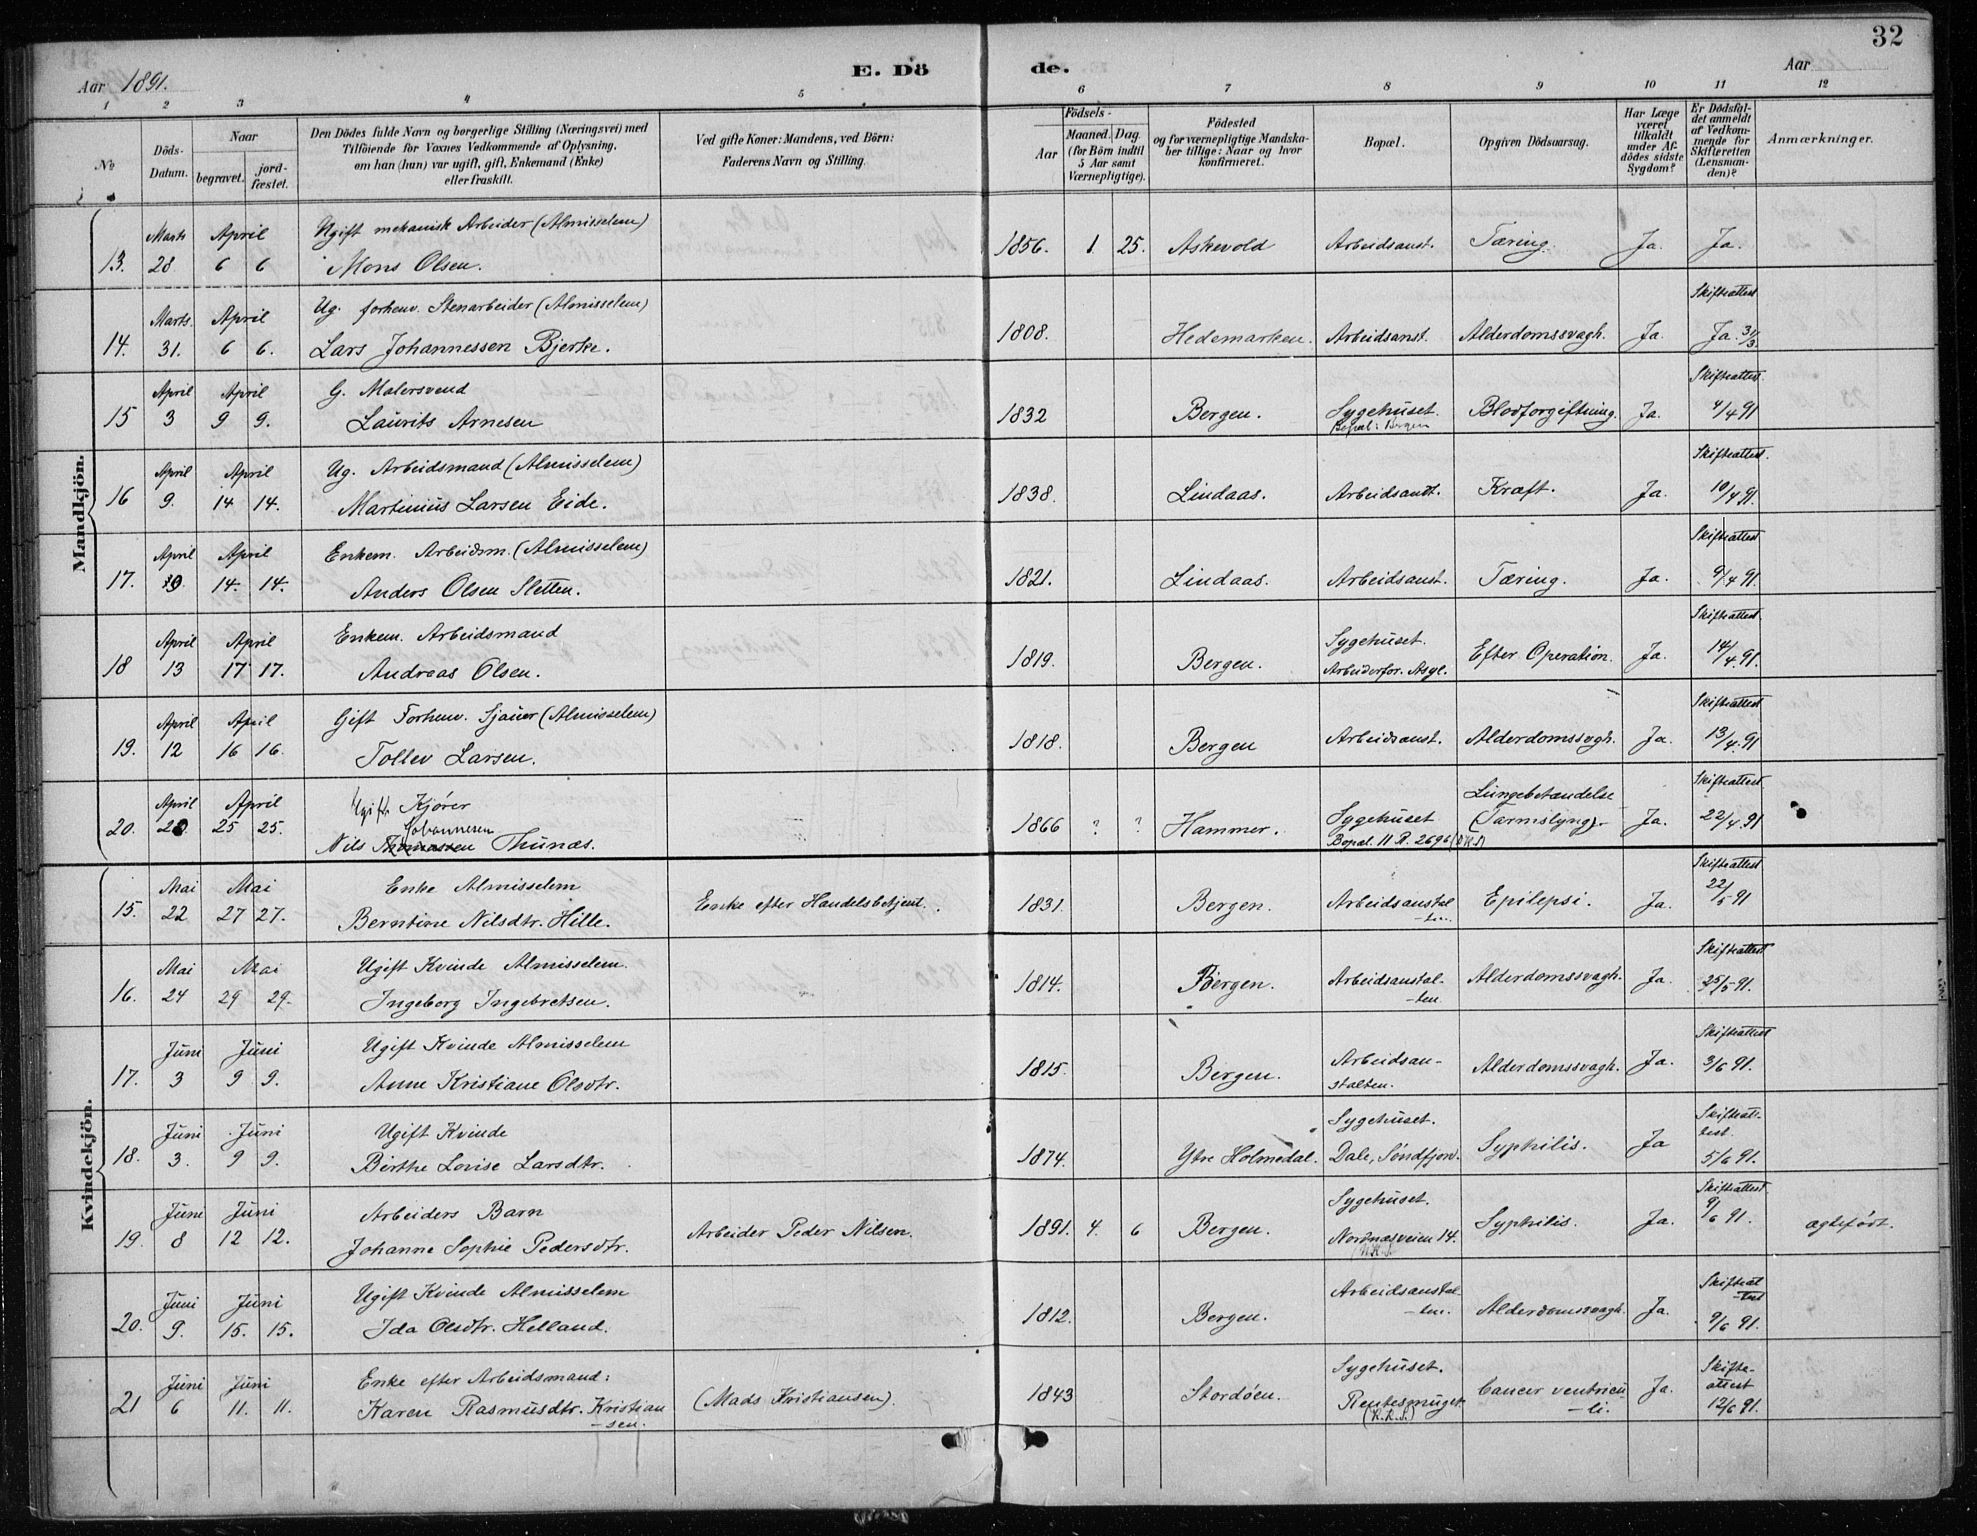 32
Aar 1891. E. Dö de. Aar
1 2 3 4 5 6 7 8 9 10 11 12
No
Döds-Datum.
Naar
begravet. jordfæstet.
Den Dödes fulde Navn og borgerlige Stilling (Næringsvei) med
Tilföiende for Voxnes Vedkommende af Oplysning,
om han (hun) var ugift, gift, Enkemand (Enke)
eller fraskilt.
Ved gifte Koner: Mandens, ved Börn:
Faderens Navn og Stilling.
Födsels-
Aar Maaned. Dag.
(for Börn indtil
5 Aar samt
Værnepligtige).
Födested
og for værnepligtige Mandskaber tillige: Naar og hvor
konfirmeret.
Bopæl.
Opgiven Dödsaarsag.
Har Læge
været
tilkaldt
under Afdödes sidste
Sygdom?
Er Dödsfaldet anmeldt
af Vedkommende for
Skifteretten
(Lensmanden)?
Anmærkninger.
Mandkjön.
Marts April Ugift mekanisk Arbeider (Almisselem)
13. 28 6 6 Mons Olsen. 1856. 1. 25. Askevold Arbeidsanst. Tæring. Ja. Ja.
Marts. April Ug. forhenv. Stenarbeider (Almisselem) Skifteattest
14. 31. 6 6. Lars Johannessen Bjerke. 1808. Hedemarken. Arbeidsanst. Alderdomssvagh. Ja. Ja. 31/3
April April G. Malersvend Skifteattest.
15 3 9 9. Laurits Arnesen 1832 Bergen. Sygehuset. Blodforgiftning. Ja. 4/4 91
Bopæl: Bergen
April April Ug. Arbeidsmand (Almisselem) Skifteattest.
16 9. 14 14. Martinius Larsen Eide. 1838. Lindaas. Arbeidsanst. Kræft. Ja. 10/4 91.
April April Enkem. Arbeidsm. (Almisselem) Skifteattest
17. 14. 14. Anders Olsen Sletten. 1821. Lindaas. Arbeidsanst. Tæring. Ja. 9/4 91.
April April Enkem. Arbeidsmand Sygehuset. Skifteattest
18 13 17 17. Andreas Olsen. 1819. Bergen. Arbeiderfor. Asyl. Efter Operation. Ja. 14/4 91.
April April Gift Forhenv. Sjauer (Almisselem) Skifteattest
19. 12 16 16. Tollev Larsen. 1818. Bergen Arbeidsanst. Alderdomssvgh. Ja. 13/4 91
April April Ugift. Kjører Lungebetændelse Skifteattest
20. 20 25 25. Johannesen 1866 ? ? Hammer. Sygehuset (Tarmslyng). Ja. 22/4 91
Nils Thomassen Thunæs. Bopæl. 11 R. 2696
Kvindekjön.
Mai Mai Enke Almisselem Skifteattest
15. 22 27 27. Berntine Nilsdtr. Hille. Enke efter Handelsbetjent. 1831. Bergen. Arbeidsanstalten. Epilepsi. Ja. 22/5 91
Mai Mai Ugift Kvinde Almisselem. Skifteattest
16. 24 29 29. Ingeborg Ingebretsen. 1814. Bergen. Arbeidsanstalten. Alderdomssvagh. Ja. 25/5 91.
Juni Juni Ugift Kvinde Almisselem Skifteattest
17. 3 9 9. Anne Kristiane Olsdtr. 1815. Bergen. Arbeidsanstalten. Alderdomssvagh. Ja. 3/6 91.
Juni Juni Ugift Kvinde Sygehuset. Skifteattest.
18. 3. 9 9. Birthe Lovise Larsdtr. 1874. Ytre Holmedal. Dale, Søndfjord. Syphilis. Ja 5/6 91.
Juni Juni Arbeiders Barn Sygehuset. Skifteattest
19. 8 12 12. Johanne Sophie Pedersdtr. Arbeider Peder Nilsen. 1891. 4. 6 Bergen. Nordnæsveien 14. Syphilis. Ja. 9/6 91. ægtefødt.
Juni Juni Ugift Kvinde Almisselem Arbeidsanstalten. Skifteattest
20. 9. 15. 15. Ida Olsdtr. Helland. 1812. Bergen. Alderdomssvagh. Ja. 9/6 91.
Juni Juni Enke efter Arbeidsmand: Sygehuset. Skifteattest
21 6 11. 11. Karen Rasmusdtr. Kristiansen. (Mads Kristiansen). 1843 Stordöen. Rentesmuget Cancer ventriculi. Ja. 12/6 91.